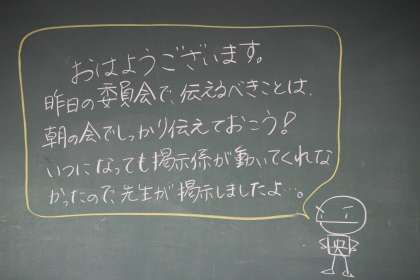 おはようございます。
昨日の委員会で、伝えるべきことは、
朝の会でしっかり伝えておこう!
いつになっても掲示係が動いてくれな
かったので、先生が掲示しましたよ…。